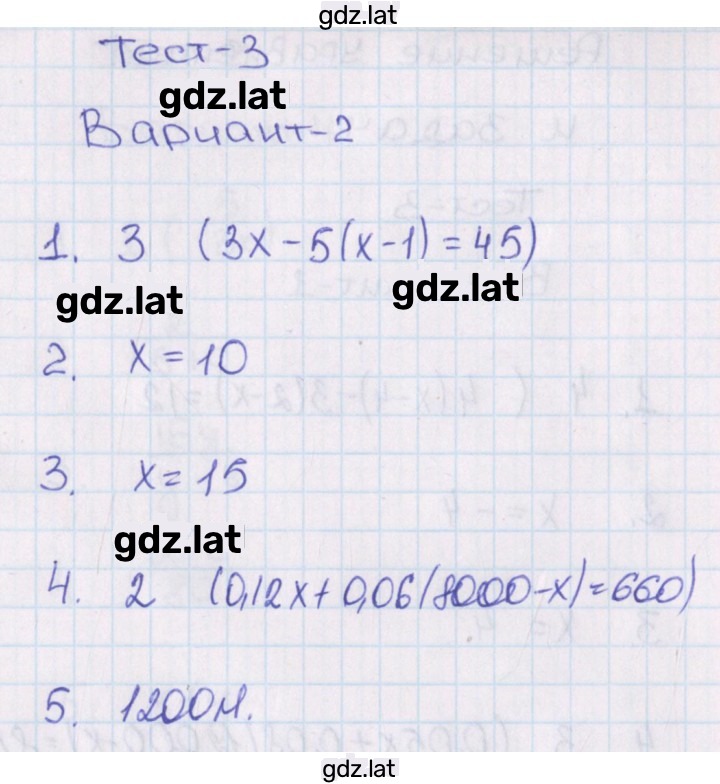 gdz.lat
Тест-3
gdz.lat
Вариант-2
1. 3 (3x-5(x-1)=45)
gdz.lat gdz.lat
2. x=10
3. x=15
gdz.lat
4. 2 (0,12x+0,06(8000-x)=660)
5. 1200м.
gdz.lat